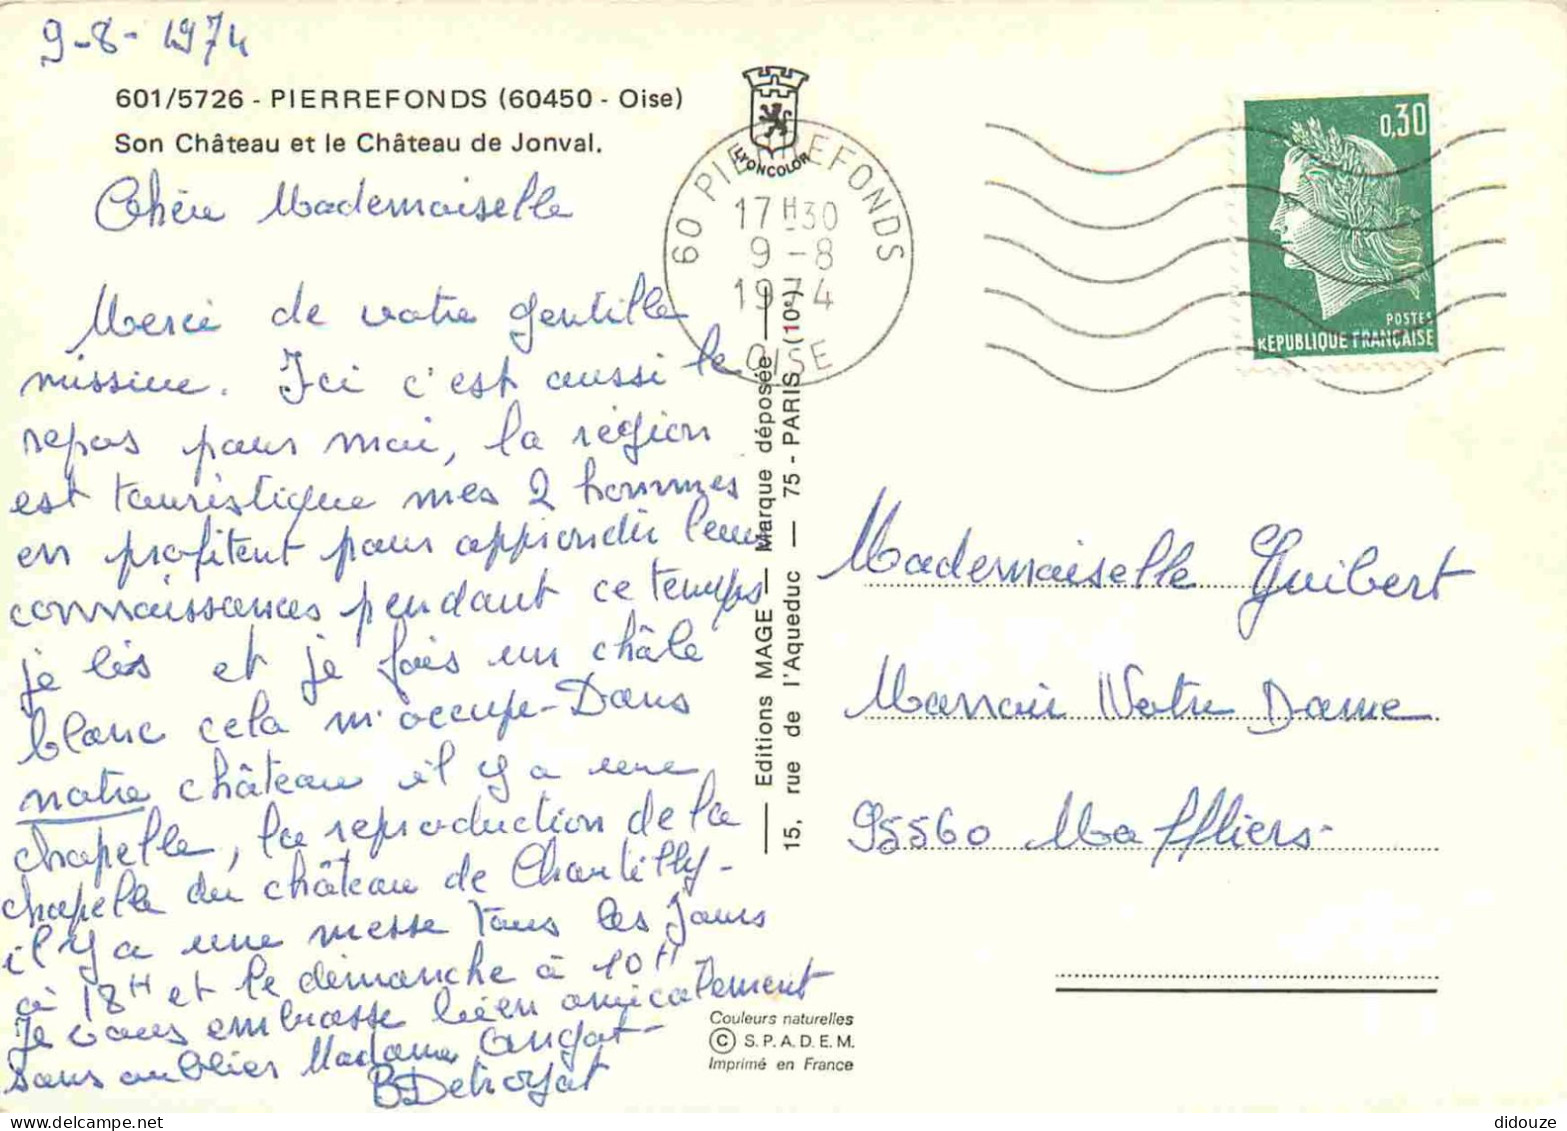 9-8-1974
601/5726 - PIERREFONDS (60450 - Oise)
Son Château et le Château de Jonval.
LYONCOLOR
60 PIERREFONDS
17H30
9-8
1974
OISE
0,30
POSTES
REPUBLIQUE FRANÇAISE
Chère Mademoiselle
Merci de votre gentille
missive. Ici c'est aussi le
repos pour moi, la région
est touristique mes 2 hommes
en profitent pour approndir leurs
connaissances pendant ce temps
je lis et je fais un châle
blanc cela m'occupe - Dans
notre château il y a une
chapelle, la reproduction de la
chapelle du château de Chantilly -
il y a une messe tous les jours
à 18H et le dimanche à 10H
Je vous embrasse bien amicalement
sans oublier Madame Angot -
B Detroyat
Editions MAGE — Marque déposée —
15, rue de l'Aqueduc — 75 - PARIS (10e)
Mademoiselle Guibert
Manoir Notre Dame
95560 Maffliers.
Couleurs naturelles
© S.P.A.D.E.M.
Imprimé en France
didouze